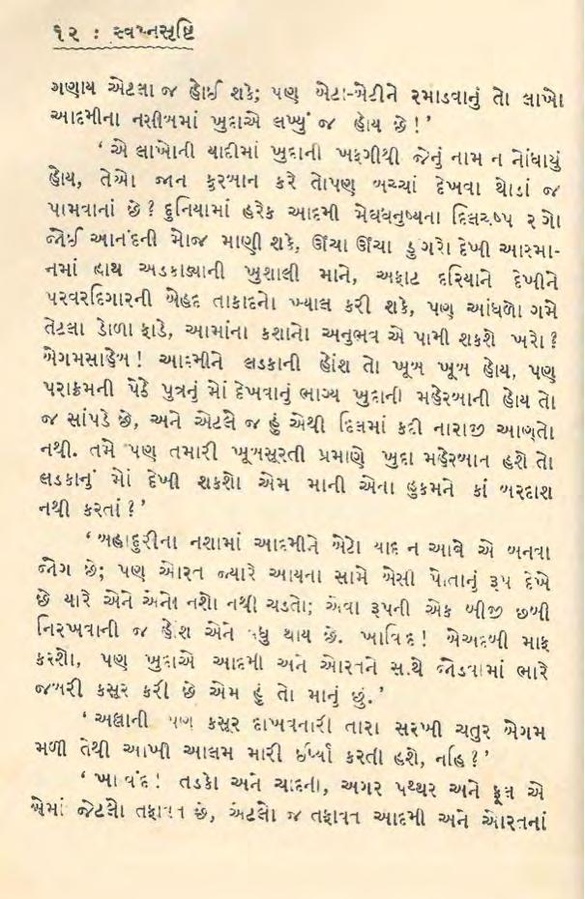 ૧૨ : સ્વપ્નસૃષ્ટિ
ગણાય એટલા જ હોઈ શકે; પણ બેટા-બેટીને રમાડવાનું તો લાખો
આદમીના નસીબમાં ખુદાએ લખ્યું જ હોય છે !'
' એ લાખોની યાદીમાં ખુદાની ખફગીથી જેનું નામ ન નોંધાયું
હોય, તેઓ જાન કુરબાન કરે તોપણ બચ્ચાં દેખવા થોડાં જ
પામવાનાં છે ? દુનિયામાં હરેક આદમી મેઘધનુષ્યના દિલચષ્પ રંગો
જોઈ આનંદની મોજ માણી શકે, ઊંચા ઊંચા ડુંગરો દેખી આસ્મા-
નમાં હાથ અડકાડ્યાની ખુશાલી માને, અફાટ દરિયાને દેખીને
પરવરદિગારની બેહદ તાકાદનો ખ્યાલ કરી શકે, પણ આંધળો ગમે
તેટલા ડોળા ફાડે, આમાંના કશાનો અનુભવ એ પામી શકશે ખરો ?
બેગમસાહેબ ! આદમીને લડકાની હોંશ તો ખૂબ ખૂબ હોય, પણ
પરાક્રમની પેઠે પુત્રનું મોં દેખવાનું ભાગ્ય ખુદાની મહેરબાની હોય તો
જ સાંપડે છે, અને એટલે જ હું એથી દિલમાં કદી નારાજી આણતો
નથી. તમે પણ તમારી ખૂબસૂરતી પ્રમાણે ખુદા મહેરબાન હશે તો
લડકાનું મોં દેખી શકશો એમ માની એના હુકમને કાં બરદાશ
નથી કરતાં ?'
' બહાદુરીના નશામાં આદમીને બેટો યાદ ન આવે એ બનવા
જોગ છે; પણ ઓરત જ્યારે આયના સામે બેસી પોતાનું રૂપ દેખે
છે ત્યારે એને એનો નશો નથી ચડતો; એવા રૂપની એક બીજી છબી
નિરખવાની જ હોંશ એને વધુ થાય છે. ખાવિંદ ! બેઅદબી માફ
કરશો, પણ ખુદાએ આદમી અને ઓરતને સાથે જોડવામાં ભારે
જબરી કસૂર કરી છે એમ હું તો માનું છું.'
' અલ્લાની પણ કસૂર દાખવનારી તારા સરખી ચતુર બેગમ
મળી તેથી આખી આલમ મારી ઈર્ષ્યા કરતી હશે, નહિ ?'
' ખાવંદ ! તડકો અને ચાંદની, અગર પથ્થર અને ફૂલ એ
બેમાં જેટલો તફાવત છે, એટલો જ તફાવત આદમી અને ઓરતનાં